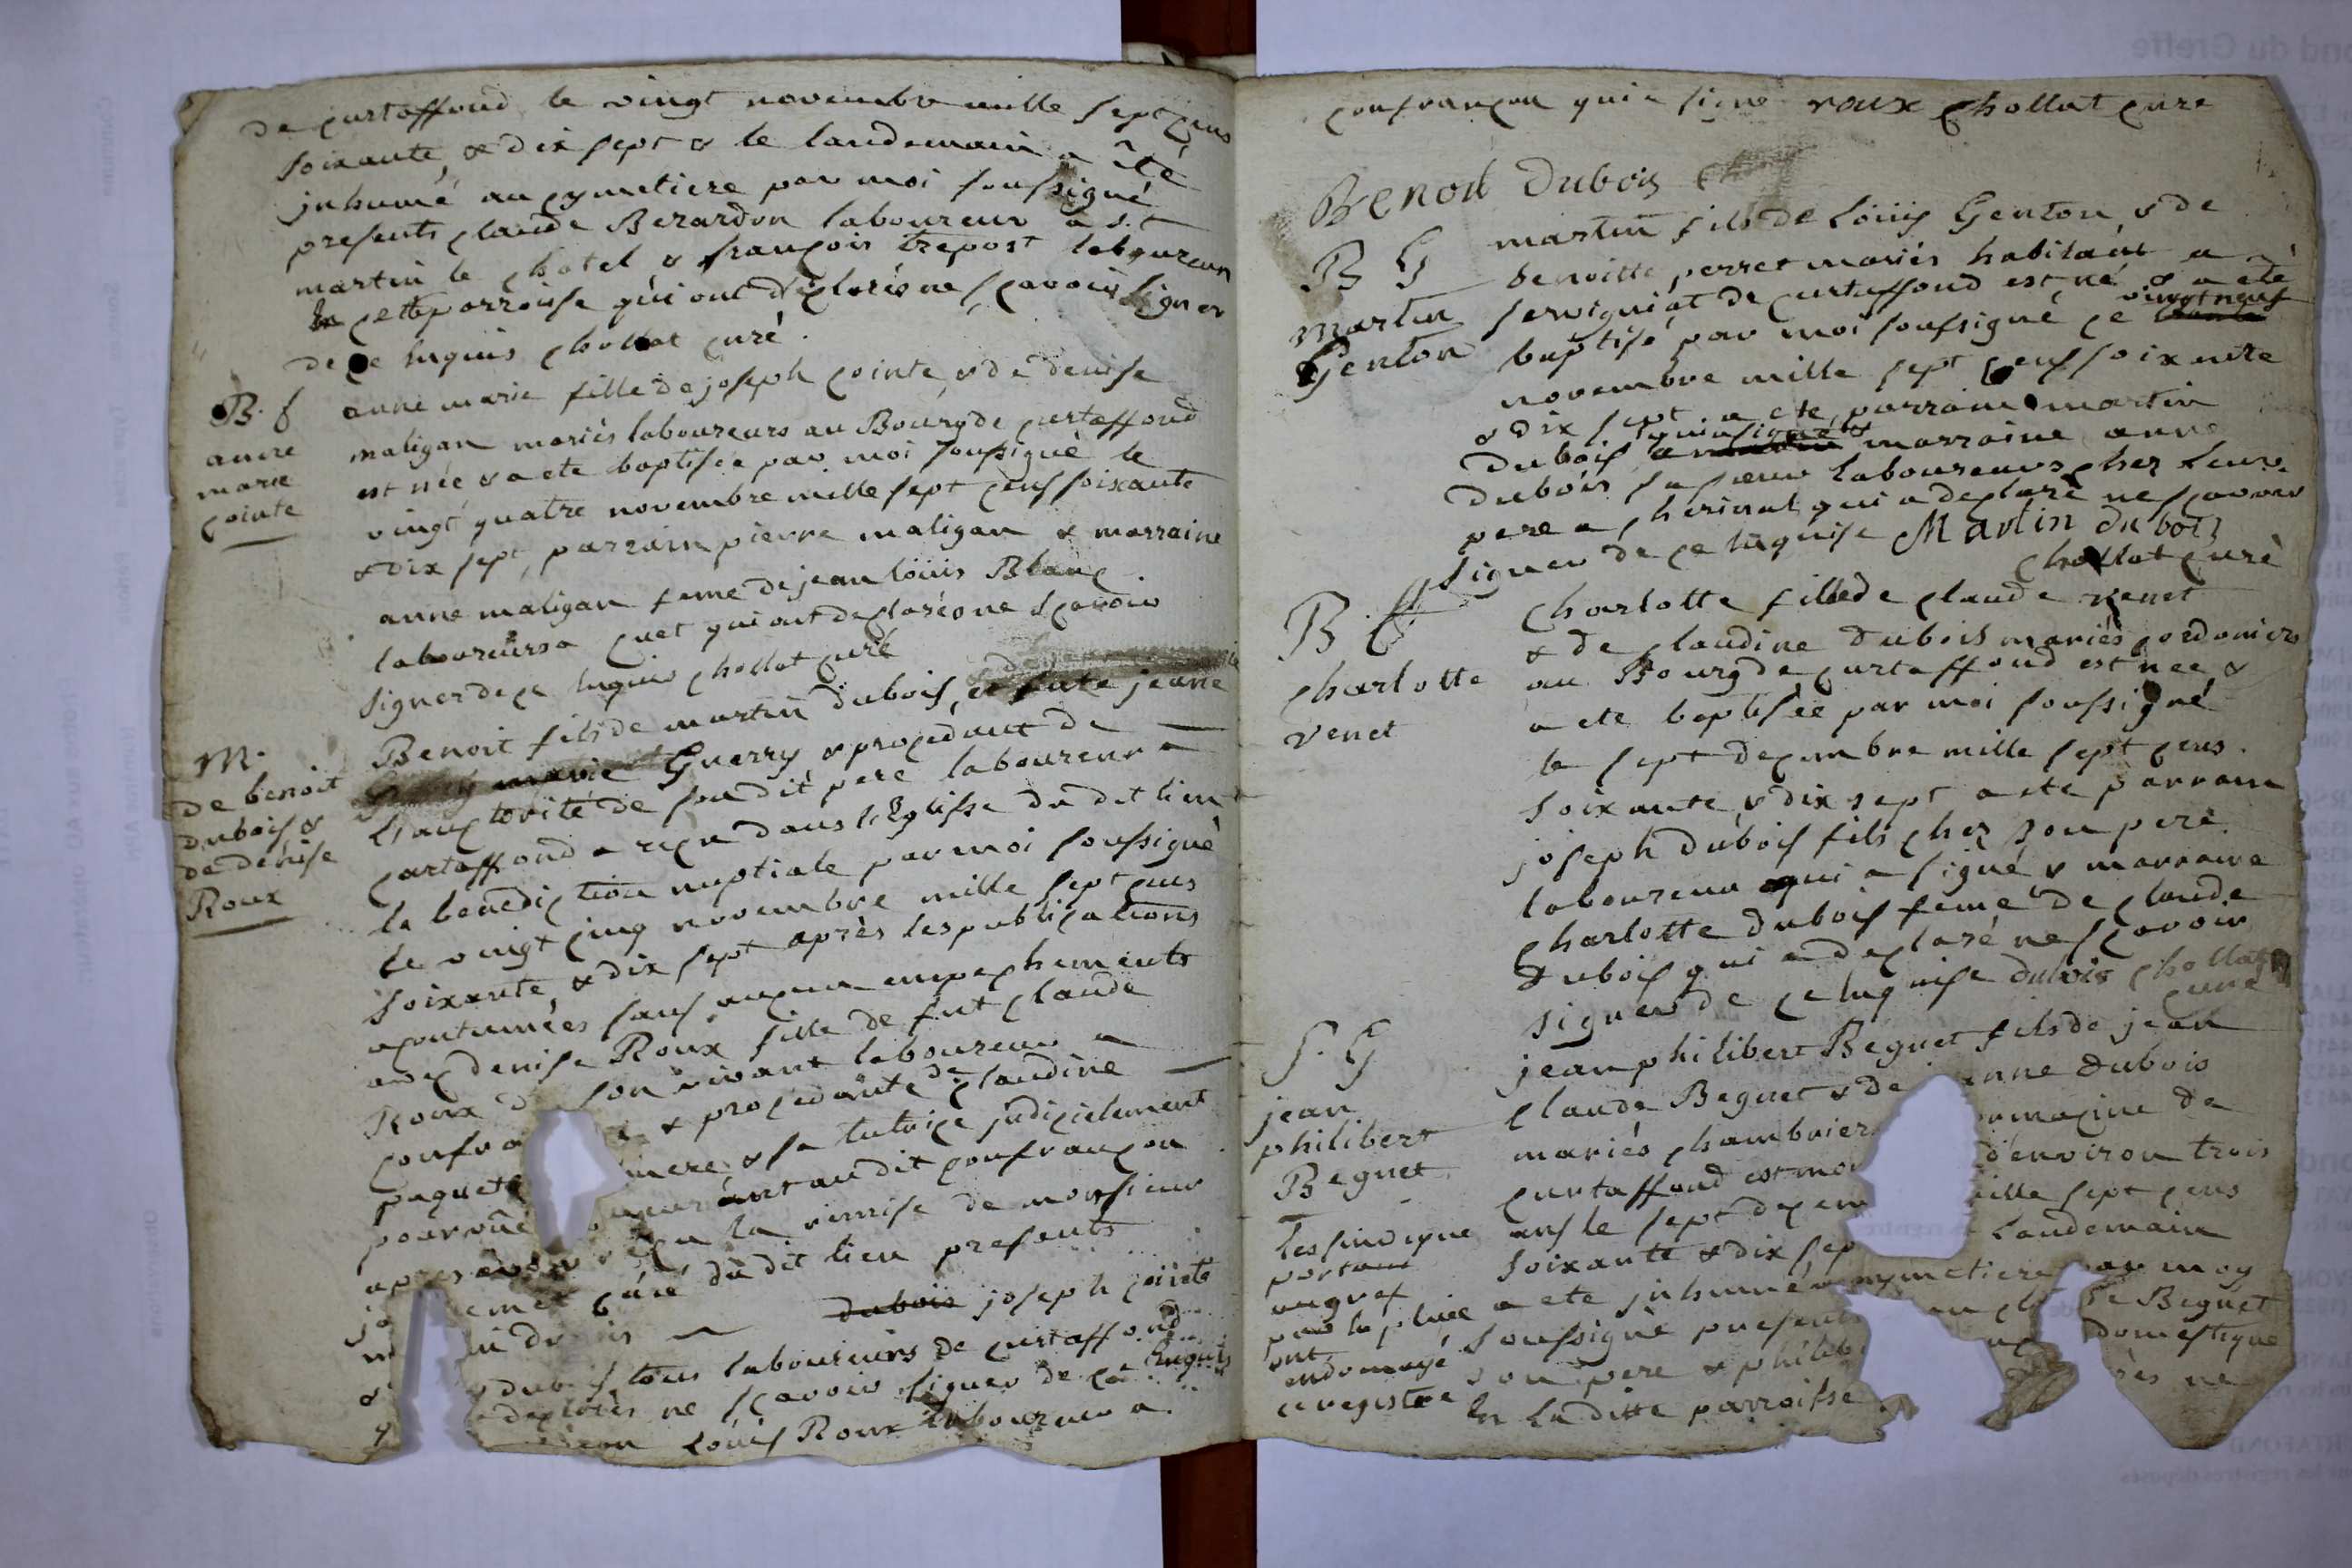 de curtaffond le vingt novembre mille sept cens
soixante & dix sept & le landemain a été
inhumé au cymetiere par moi soussigné
presents claude Berardon laboureur a st
martin le chatel & françois trepost laboureur
en cette parroisse qui ont declarés ne sçavoir signer
de ce enquis chollat curé.
B. f
anne
marie
cointe
anne marie fille de joseph cointe & de denise
maligan mariés laboureurs au Bourg de curtaffond
est née & a ete baptisée par moi soussigné le
vingt quatre novembre mille sept cens soixante
& dix sept, parrain pierre maligan & marraine
anne maligan feme de jean loüis Blanc
laboureurs a cuet qui ont declarés ne sçavoir
signer de ce enquis chollat curé
M.
de benoit
dubois &
de denise
Roux
Benoit fils de martin dubois, et jeane
marie Guerry & procedant de
l'auctorité de son dit pere laboureur a
curtaffond a reçu dans l'Eglise du dit lieu
la benediction nuptiale par moi soussigné
le vingt cinq novembre mille sept cens
soixante & dix sept après les publications
acoutumées sans aucun empechements
avec denise Roux fille de fut claude
Roux son vivant laboureur a
confra & procedante de claudine
puguet mere & sa tutrice judicielement
pourvüe audit confrançon
apres avoir reçu la remise de monsieur
curé du dit lieu presents
dubois joseph cointe
dubois tous laboureurs de curtaffond
declarés ne sçavoir signer de ce enquis
loüis Roux laboureur a
confrançon qui a signé roux chollat curé
Benoit Dubois
B G
Martin
Genton
martin fils de loüis Genton & de
benoitte perret mariés habitant a
servignat de curtaffond est né & a eté
baptisé par moi soussigné ce vingt neuf
novembre mille sept cens soixante
& dix sept. a ete parrain martin
dubois qui a signé & marraine anne
dubois sa sœur laboureurs chez leur
pere a cherinal qui a declaré ne sçavoir
signer de ce enquise Martin dubois
chollat curé
B. f
charlotte
venet
Charlotte fille de claude venet
& de claudine dubois mariés cordoniers
au Bourg de curtaffond est née &
a ete baptisée par moi soussigné
le sept decembre mille sept cens
soixante & dix sept a ete parrain
joseph dubois fils chez son pere
laboureur qui a signé & marraine
Charlotte dubois feme de claude
dubois qui a declaré ne sçavoir
signer de ce enquise dubois chollat
curé
S. G
jean
philibert
Beguet
jean philibert Beguet fils de jean
claude Beguet & de anne dubois
mariés chambrier de
curtaffond est mor d'environ trois
ans le sept decem mille sept cens
soixante & dix sep landemain
a ete inhumé cymetiere par moy
soussigné presents Beguet
son pere & philib domestique
en la ditte parroisse ne
les sindique
portant
au gref
par la pluie
ont
endomagé
ce registre